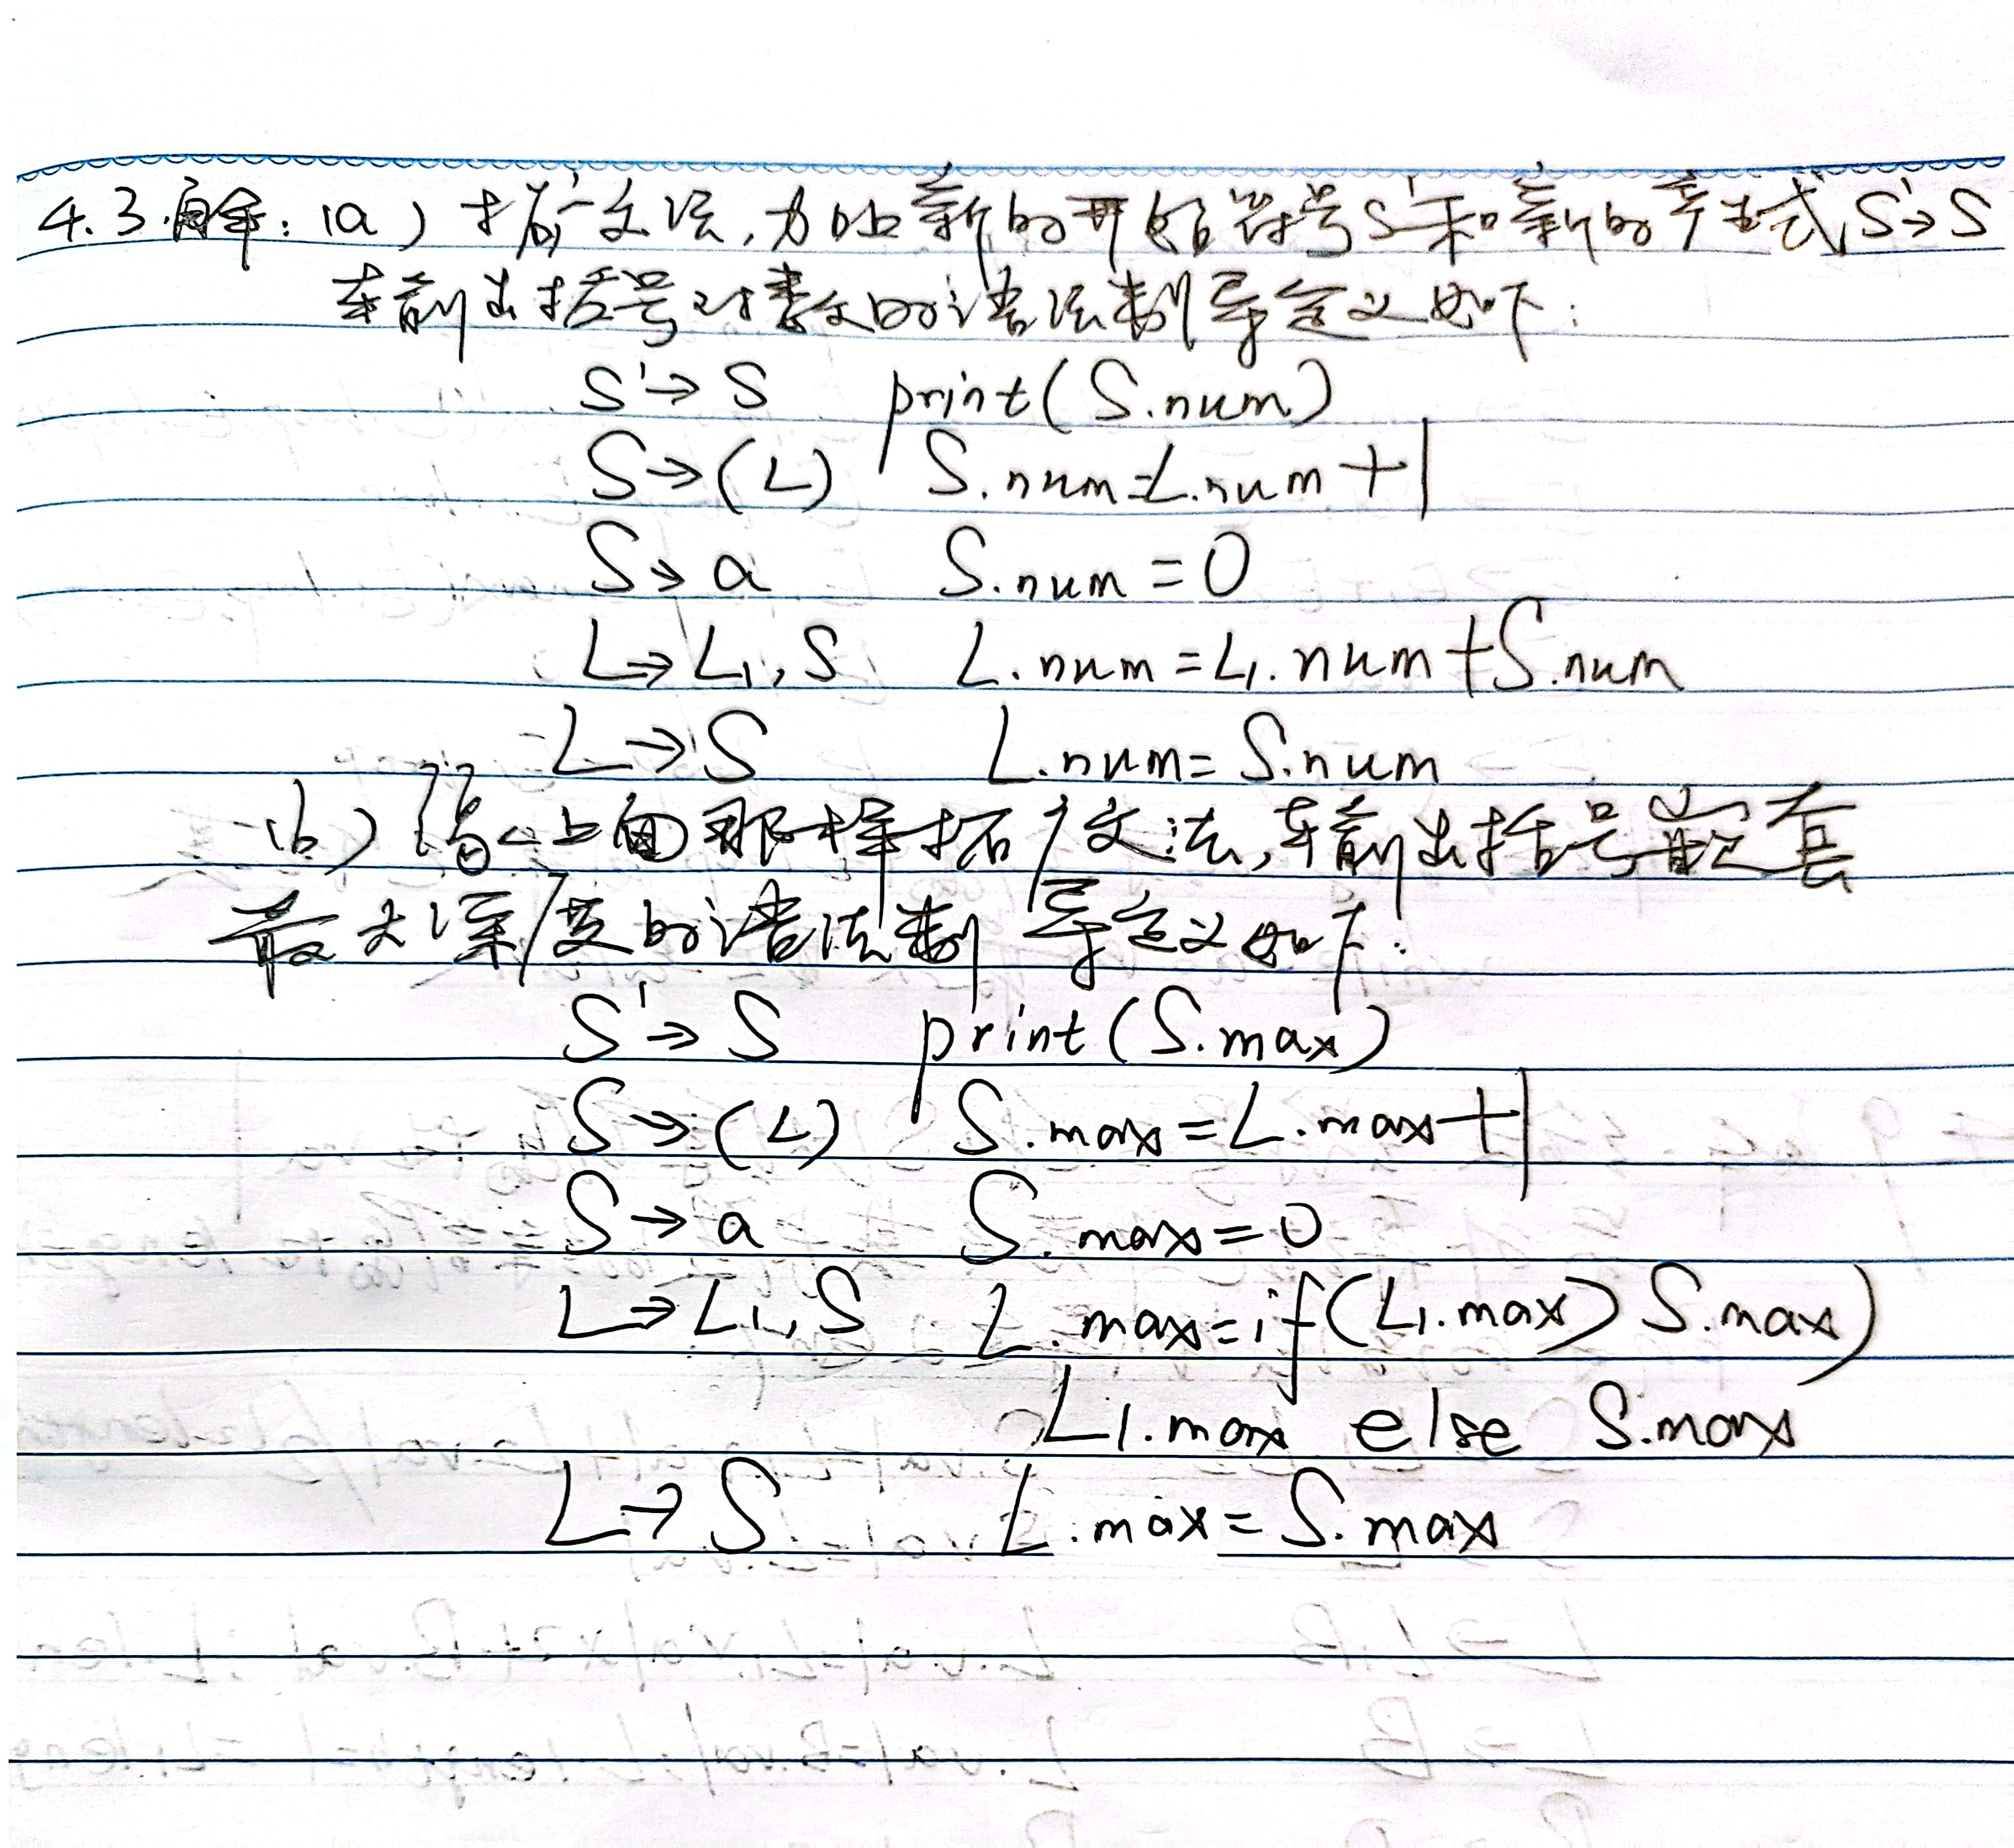 4.3.解:(a)拓广文法,加上新的开始符号S'和新的产生式S'→S
输出括号对数的语法制导定义如下:
S'→S print(S.num)
S→(L) S.num=L.num+1
S→a S.num=0
L→L₁,S L.num=L₁.num+S.num
L→S L.num=S.num
(b)像上面那样拓广文法,输出括号嵌套
最大深度的语法制导定义如下:
S'→S print(S.max)
S→(L) S.max=L.max+1
S→a S.max=0
L→L₁,S L.max=if(L₁.max>S.max)
L₁.max else S.max
L→S L.max=S.max